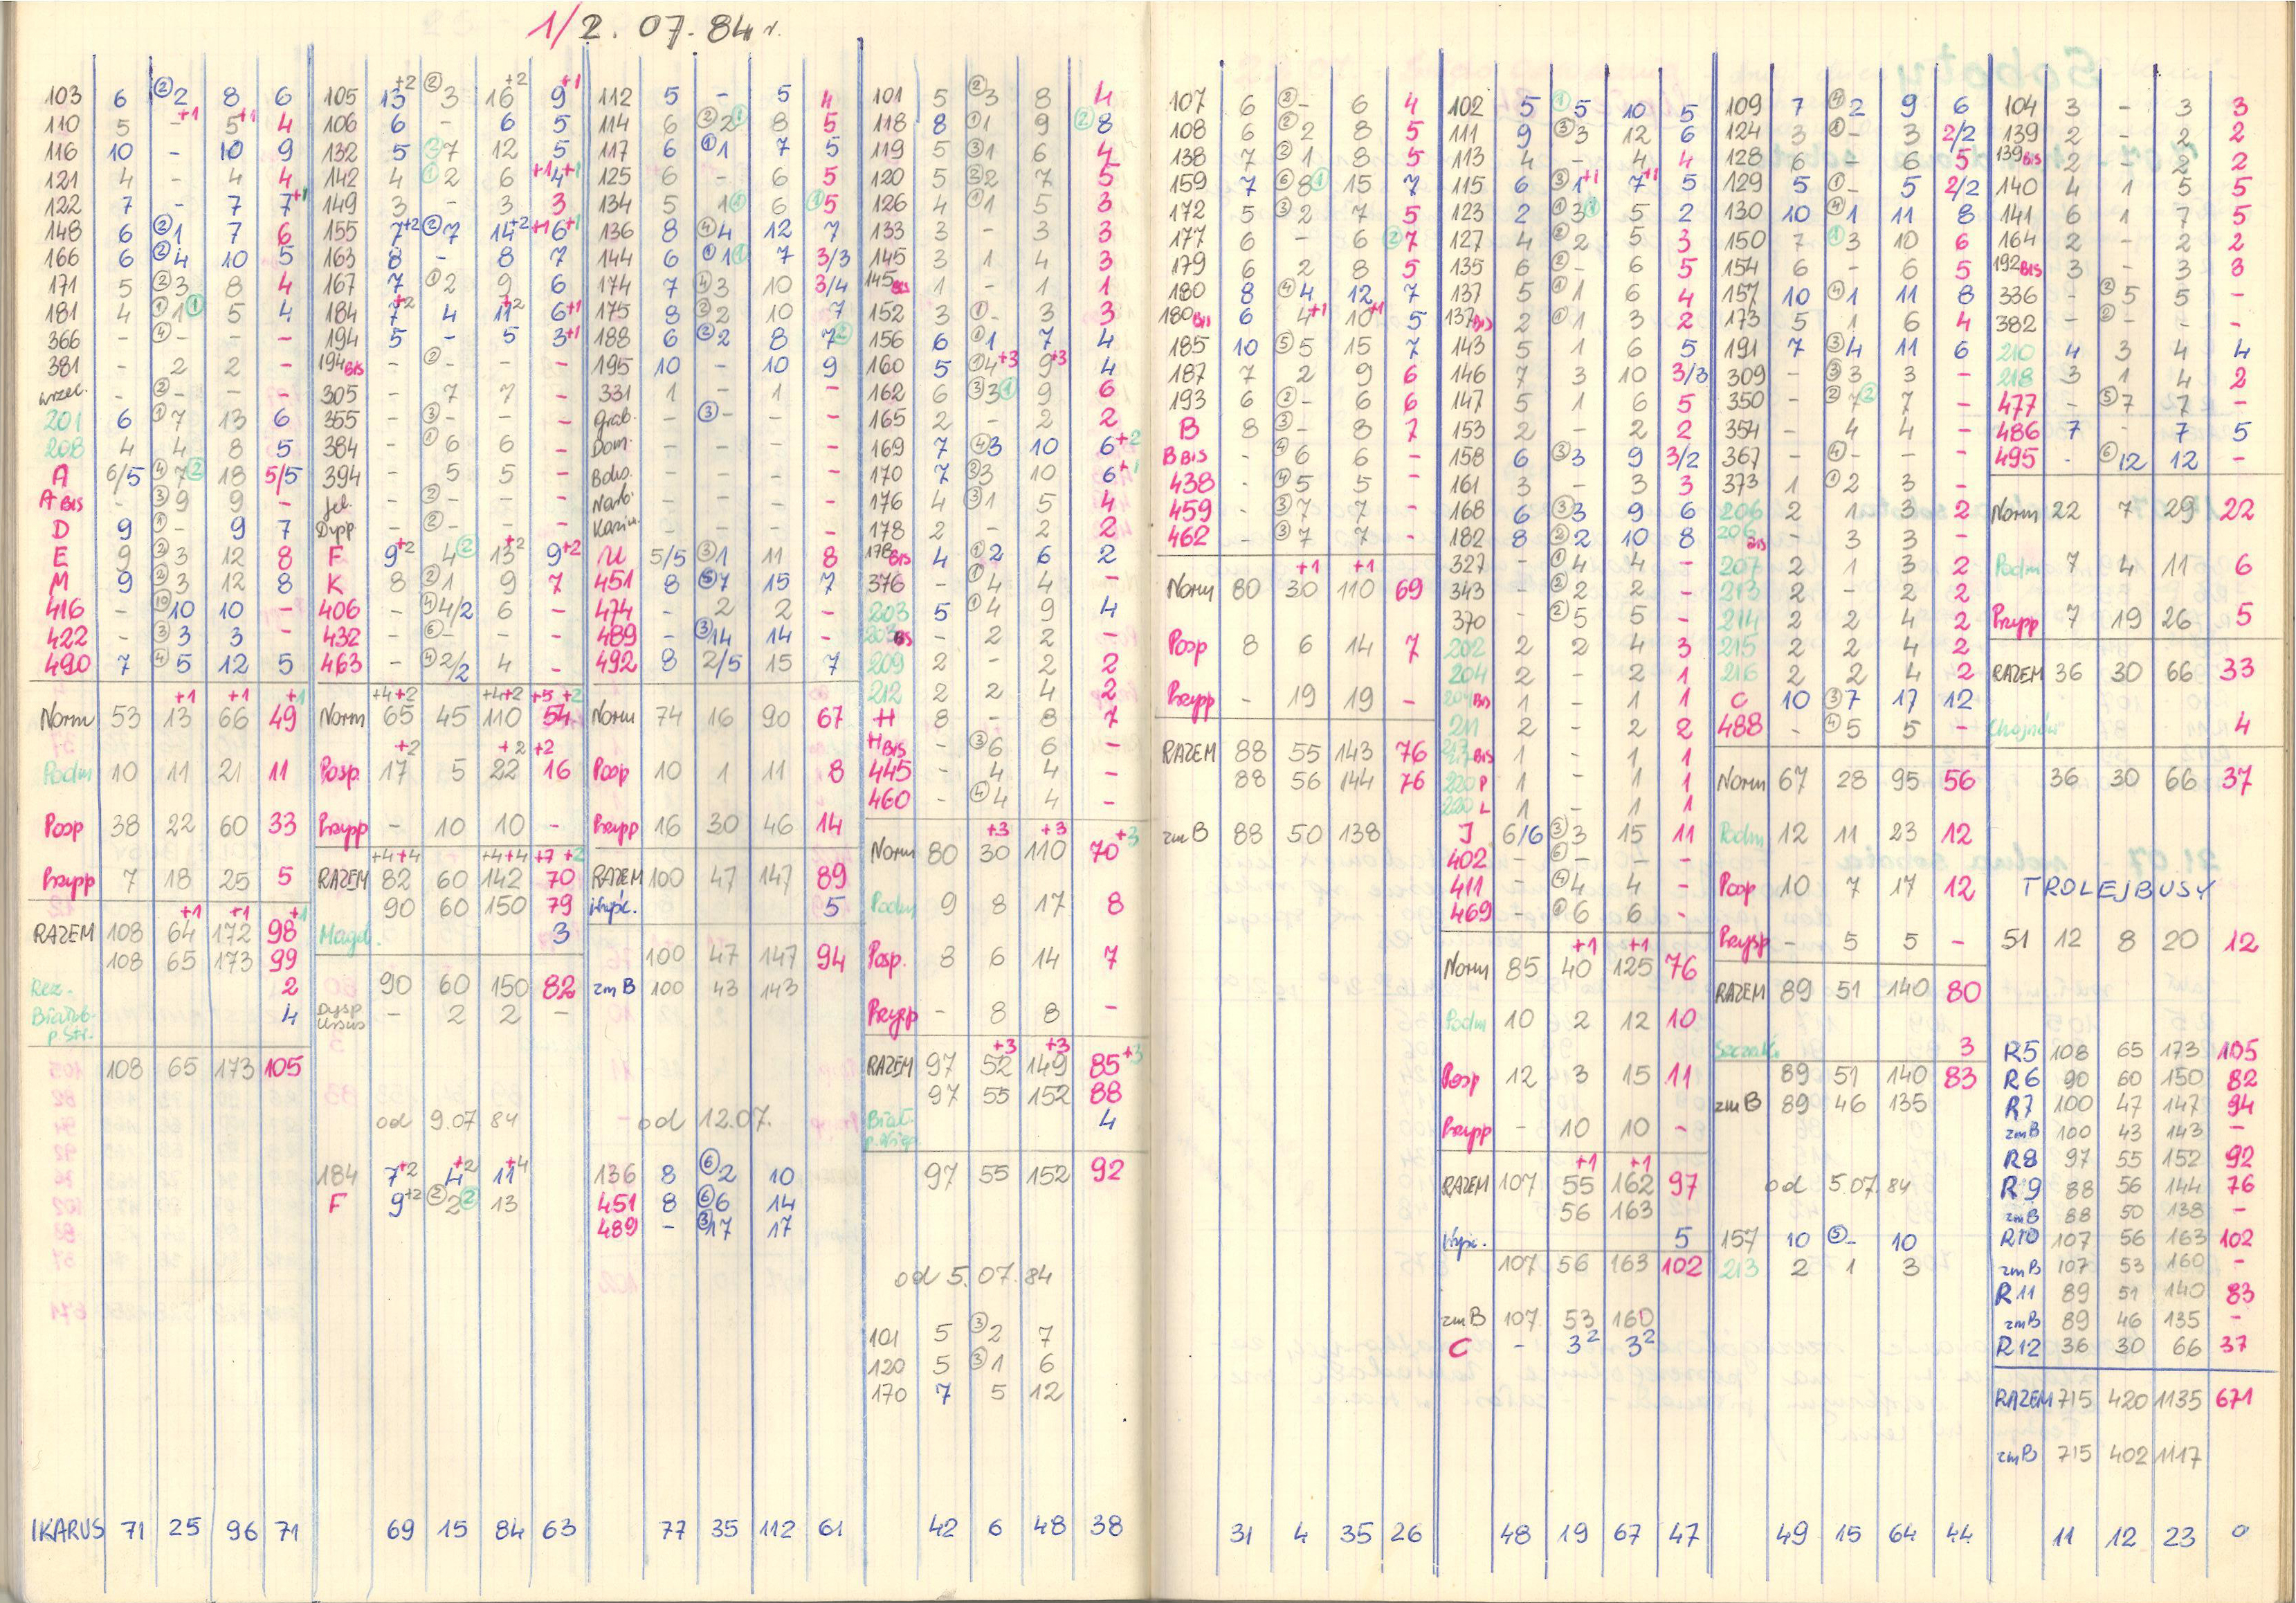 1/2. 07. 84 r.
103 6 ② 2 8 6
110 5 - +1 5 +1 4
116 10 - 10 9
121 4 - 4 4
122 7 - 7 7 +1
148 6 ② 1 7 6
166 6 ② 4 10 5
171 5 ② 3 8 4
181 4 ① 1 ① 5 4
366 - ④ - - -
381 - 2 2 -
- ② - - -
201 6 ① 7 13 6
208 4 4 8 5
A 6/5 ④ 7 ② 18 5/5
A BIS - ③ 9 9 -
D 9 ① - 9 7
E 9 ② 3 12 8
M 9 ② 3 12 8
416 - ⑩ 10 10 -
422 - ③ 3 3 -
490 7 ④ 5 12 5
+1 +1 +1
Norm 53 13 66 49
Podm 10 11 21 11
Posp 38 22 60 33
Przysp 7 18 25 5
+1 +1 +1
RAZEM 108 64 172 98
108 65 173 99
Rez. 2
Białob. p. Str. 4
108 65 173 105
IKARUS 71 25 96 71
105 13 +2 ② 3 16 +2 9 +1
106 6 - 6 5
132 5 ③ 7 12 5
142 4 ① 2 6 +1 4 +1
149 3 - 3 3
155 7 +2 ② 7 14 +2 +1 6 +1
163 8 - 8 7
167 7 ① 2 9 6
184 7 +2 4 11 +2 6 +1
194 5 - 5 3 +1
194 BIS - ② - - -
305 - 7 7 -
355 - ③ - - -
384 - ① 6 6 -
394 - 5 5 -
Jel. - ② - - -
Dypp. - ② - - -
F 9 +2 4 ② 13 +2 9 +2
K 8 ② 1 9 7
406 - ④ 4/2 6 -
432 - ⑥ - - -
463 - ④ 2/2 4 -
+4 +2 +4 +2 +5 +2
Norm 65 45 110 54
+2 +2 +2
Posp. 17 5 22 16
Przysp - 10 10 -
+4 +4 +4 +4 +7 +2
RAZEM 82 60 142 70
90 60 150 79
Magd. 3
90 60 150 82
Dysp Ursus - 2 2 -
od 9.07 84
184 7 +2 4 +2 11 +4
F 9 +2 ② 2 ② 13
69 15 84 63
112 5 - 5 4
114 6 ② 2 ① 8 5
117 6 ① 1 7 5
125 6 - 6 5
134 5 1 ① 6 ① 5
136 8 ④ 4 12 7
144 6 ① 1 ① 7 3/3
174 7 ④ 3 10 3/4
175 8 ② 2 10 7
188 6 ② 2 8 7 ②
195 10 - 10 9
331 1 - 1 -
Grab. - ③ - - -
Dom. - - - -
- - - -
Narb. - - - -
- - - -
U 5/5 ③ 1 11 8
451 8 ⑤ 7 15 7
474 - 2 2 -
489 - ③ 14 14 -
492 8 2/5 15 7
Norm 74 16 90 67
Posp 10 1 11 8
Przysp 16 30 46 14
RAZEM 100 47 147 89
Wyśc. 5
100 47 147 94
zm B 100 43 143
od 12.07.
136 8 ⑥ 2 10
451 8 ⑥ 6 14
489 - ③ 17 17
77 35 112 61
101 5 ② 3 8 4
118 8 ① 1 9 ② 8
119 5 ③ 1 6 4
120 5 ② 2 7 5
126 4 ① 1 5 3
133 3 - 3 3
145 3 1 4 3
145 BIS 1 - 1 1
152 3 ① - 3 3
156 6 ① 1 7 4
160 5 ① 4 +3 9 +3 4
162 6 ③ 3 ① 9 6
165 2 - 2 2
169 7 ④ 3 10 6 +2
170 7 ② 3 10 6 +1
176 4 ③ 1 5 4
178 2 - 2 2
178 BIS 4 ① 2 6 2
376 - ① 4 4 -
203 5 ① 4 9 4
203 BIS - 2 2 -
209 2 - 2 2
212 2 2 4 2
H 8 - 8 7
H BIS - ③ 6 6 -
445 - 4 4 -
460 - ④ 4 4 -
+3 +3 +3
Norm 80 30 110 70
Podm 9 8 17 8
Posp. 8 6 14 7
Przysp - 8 8 -
+3 +3 +3
RAZEM 97 52 149 85
97 55 152 88
Biał. 4
97 55 152 92
od 5.07.84
101 5 ③ 2 7
120 5 ③ 1 6
170 7 5 12
42 6 48 38
107 6 ② - 6 4
108 6 ② 2 8 5
138 7 ② 1 8 5
159 7 ⑥ 8 ① 15 7
172 5 ③ 2 7 5
177 6 - 6 ② 7
179 6 2 8 5
180 8 ④ 4 12 7
180 BIS 6 4 +1 10 +1 5
185 10 ⑤ 5 15 7
187 7 2 9 6
193 6 ② - 6 6
B 8 ③ - 8 7
B BIS - ④ 6 6 -
438 - ④ 5 5 -
459 - ③ 7 7 -
462 - ③ 7 7 -
+1 +1
Norm 80 30 110 69
Posp 8 6 14 7
Przysp - 19 19 -
RAZEM 88 55 143 76
88 56 144 76
zm B 88 50 138
31 4 35 26
102 5 ① 5 10 5
111 9 ③ 3 12 6
113 4 - 4 4
115 6 ③ 1 +1 7 +1 5
123 2 ① 3 ① 5 2
127 4 ② 2 5 3
135 6 ② - 6 5
137 5 ① 1 6 4
137 BIS 2 ① 1 3 2
143 5 1 6 5
146 7 3 10 3/3
147 5 1 6 5
153 2 - 2 2
158 6 ③ 3 9 3/2
161 3 - 3 3
168 6 ③ 3 9 6
182 8 ② 2 10 8
327 - ① 4 4 -
343 - ② 2 2 -
370 - ② 5 5 -
202 2 2 4 3
204 2 - 2 1
204 BIS 1 - 1 1
211 2 - 2 2
217 BIS 1 - 1 1
220 P 1 - 1 1
220 L 1 - 1 1
J 6/6 ③ 3 15 11
402 - ⑥ - - -
411 - ④ 4 4 -
469 - ① 6 6 -
+1 +1
Norm 85 40 125 76
Podm 10 2 12 10
Posp 12 3 15 11
Przysp - 10 10 -
+1 +1
RAZEM 107 55 162 97
56 163
Wyśc. 5
107 56 163 102
zm B 107 53 160
C - 3 2 3 2
48 19 67 47
109 7 ④ 2 9 6
124 3 ① - 3 2/2
128 6 - 6 5
129 5 ① - 5 2/2
130 10 ④ 1 11 8
150 7 ① 3 10 6
154 6 - 6 5
157 10 ④ 1 11 8
173 5 1 6 4
191 7 ③ 4 11 6
309 - ③ 3 3 -
350 - ② 7 ② 7 -
354 - 4 4 -
367 - ④ - - -
373 1 ① 2 3 -
206 2 1 3 2
206 BIS - 3 3 -
207 2 1 3 2
213 2 - 2 2
214 2 2 4 2
215 2 2 4 2
216 2 2 4 2
C 10 ③ 7 17 12
488 - ④ 5 5 -
Norm 67 28 95 56
Podm 12 11 23 12
Posp 10 7 17 12
Przysp - 5 5 -
RAZEM 89 51 140 80
3
89 51 140 83
zm B 89 46 135
od 5.07.84
157 10 ⑤ - 10
213 2 1 3
49 15 64 44
104 3 - 3 3
139 2 - 2 2
139 BIS 2 - 2 2
140 4 1 5 5
141 6 1 7 5
164 2 - 2 2
192 BIS 3 - 3 3
336 - ② 5 5 -
382 - ② - - -
210 4 3 4 4
218 3 1 4 2
477 - ⑤ 7 7 -
486 7 - 7 5
495 - ⑥ 12 12 -
Norm 22 7 29 22
Podm 7 4 11 6
Przysp 7 19 26 5
RAZEM 36 30 66 33
Chojnów 4
36 30 66 37
TROLEJBUSY
51 12 8 20 12
R5 108 65 173 105
R6 90 60 150 82
R7 100 47 147 94
zm B 100 43 143 -
R8 97 55 152 92
R9 88 56 144 76
zm B 88 50 138 -
R10 107 56 163 102
zm B 107 53 160 -
R11 89 51 140 83
zm B 89 46 135 -
R12 36 30 66 37
RAZEM 715 420 1135 671
zm B 715 402 1117
11 12 23 0